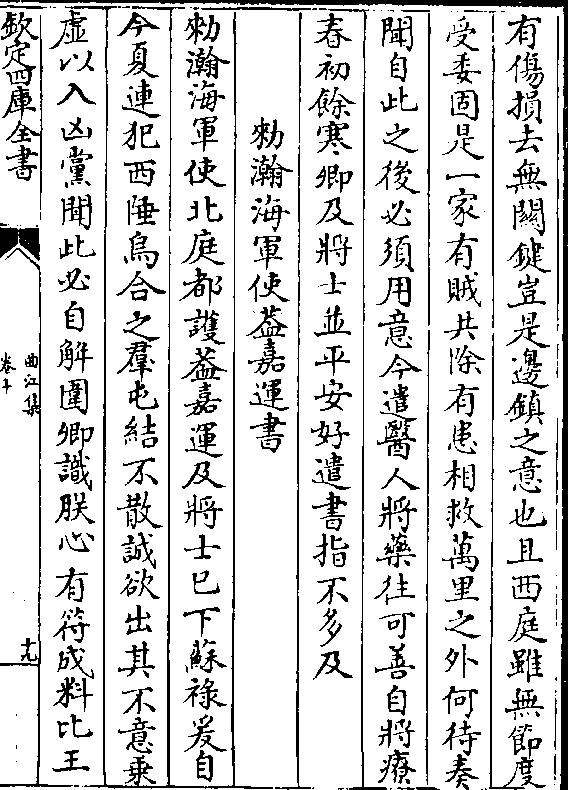 有傷損去無關鍵豈是邊鎮之意也且西庭雖無節度
受委固是一家有賊共除有患相救萬里之外何待奏
聞自此之後必須用意今遣醫人將藥往可善自將療
春初餘寒卿及將士並平安好遣書指不多及
勑瀚海軍使葢嘉運書
勑瀚海軍使北庭都護葢嘉運及將士已下蘇祿爰自
今夏連犯西陲烏合之羣屯結不散誠欲出其不意乗
虚以入凶黨聞此必自解圍卿識朕心有符成料比王
欽定四庫全書
曲江集
卷十
十九